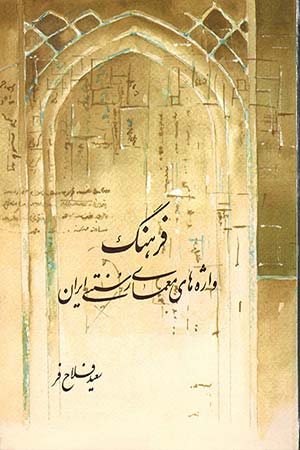 فرهنگ
واژه‌های معماری سنتی ایران
سعید فلاح فر